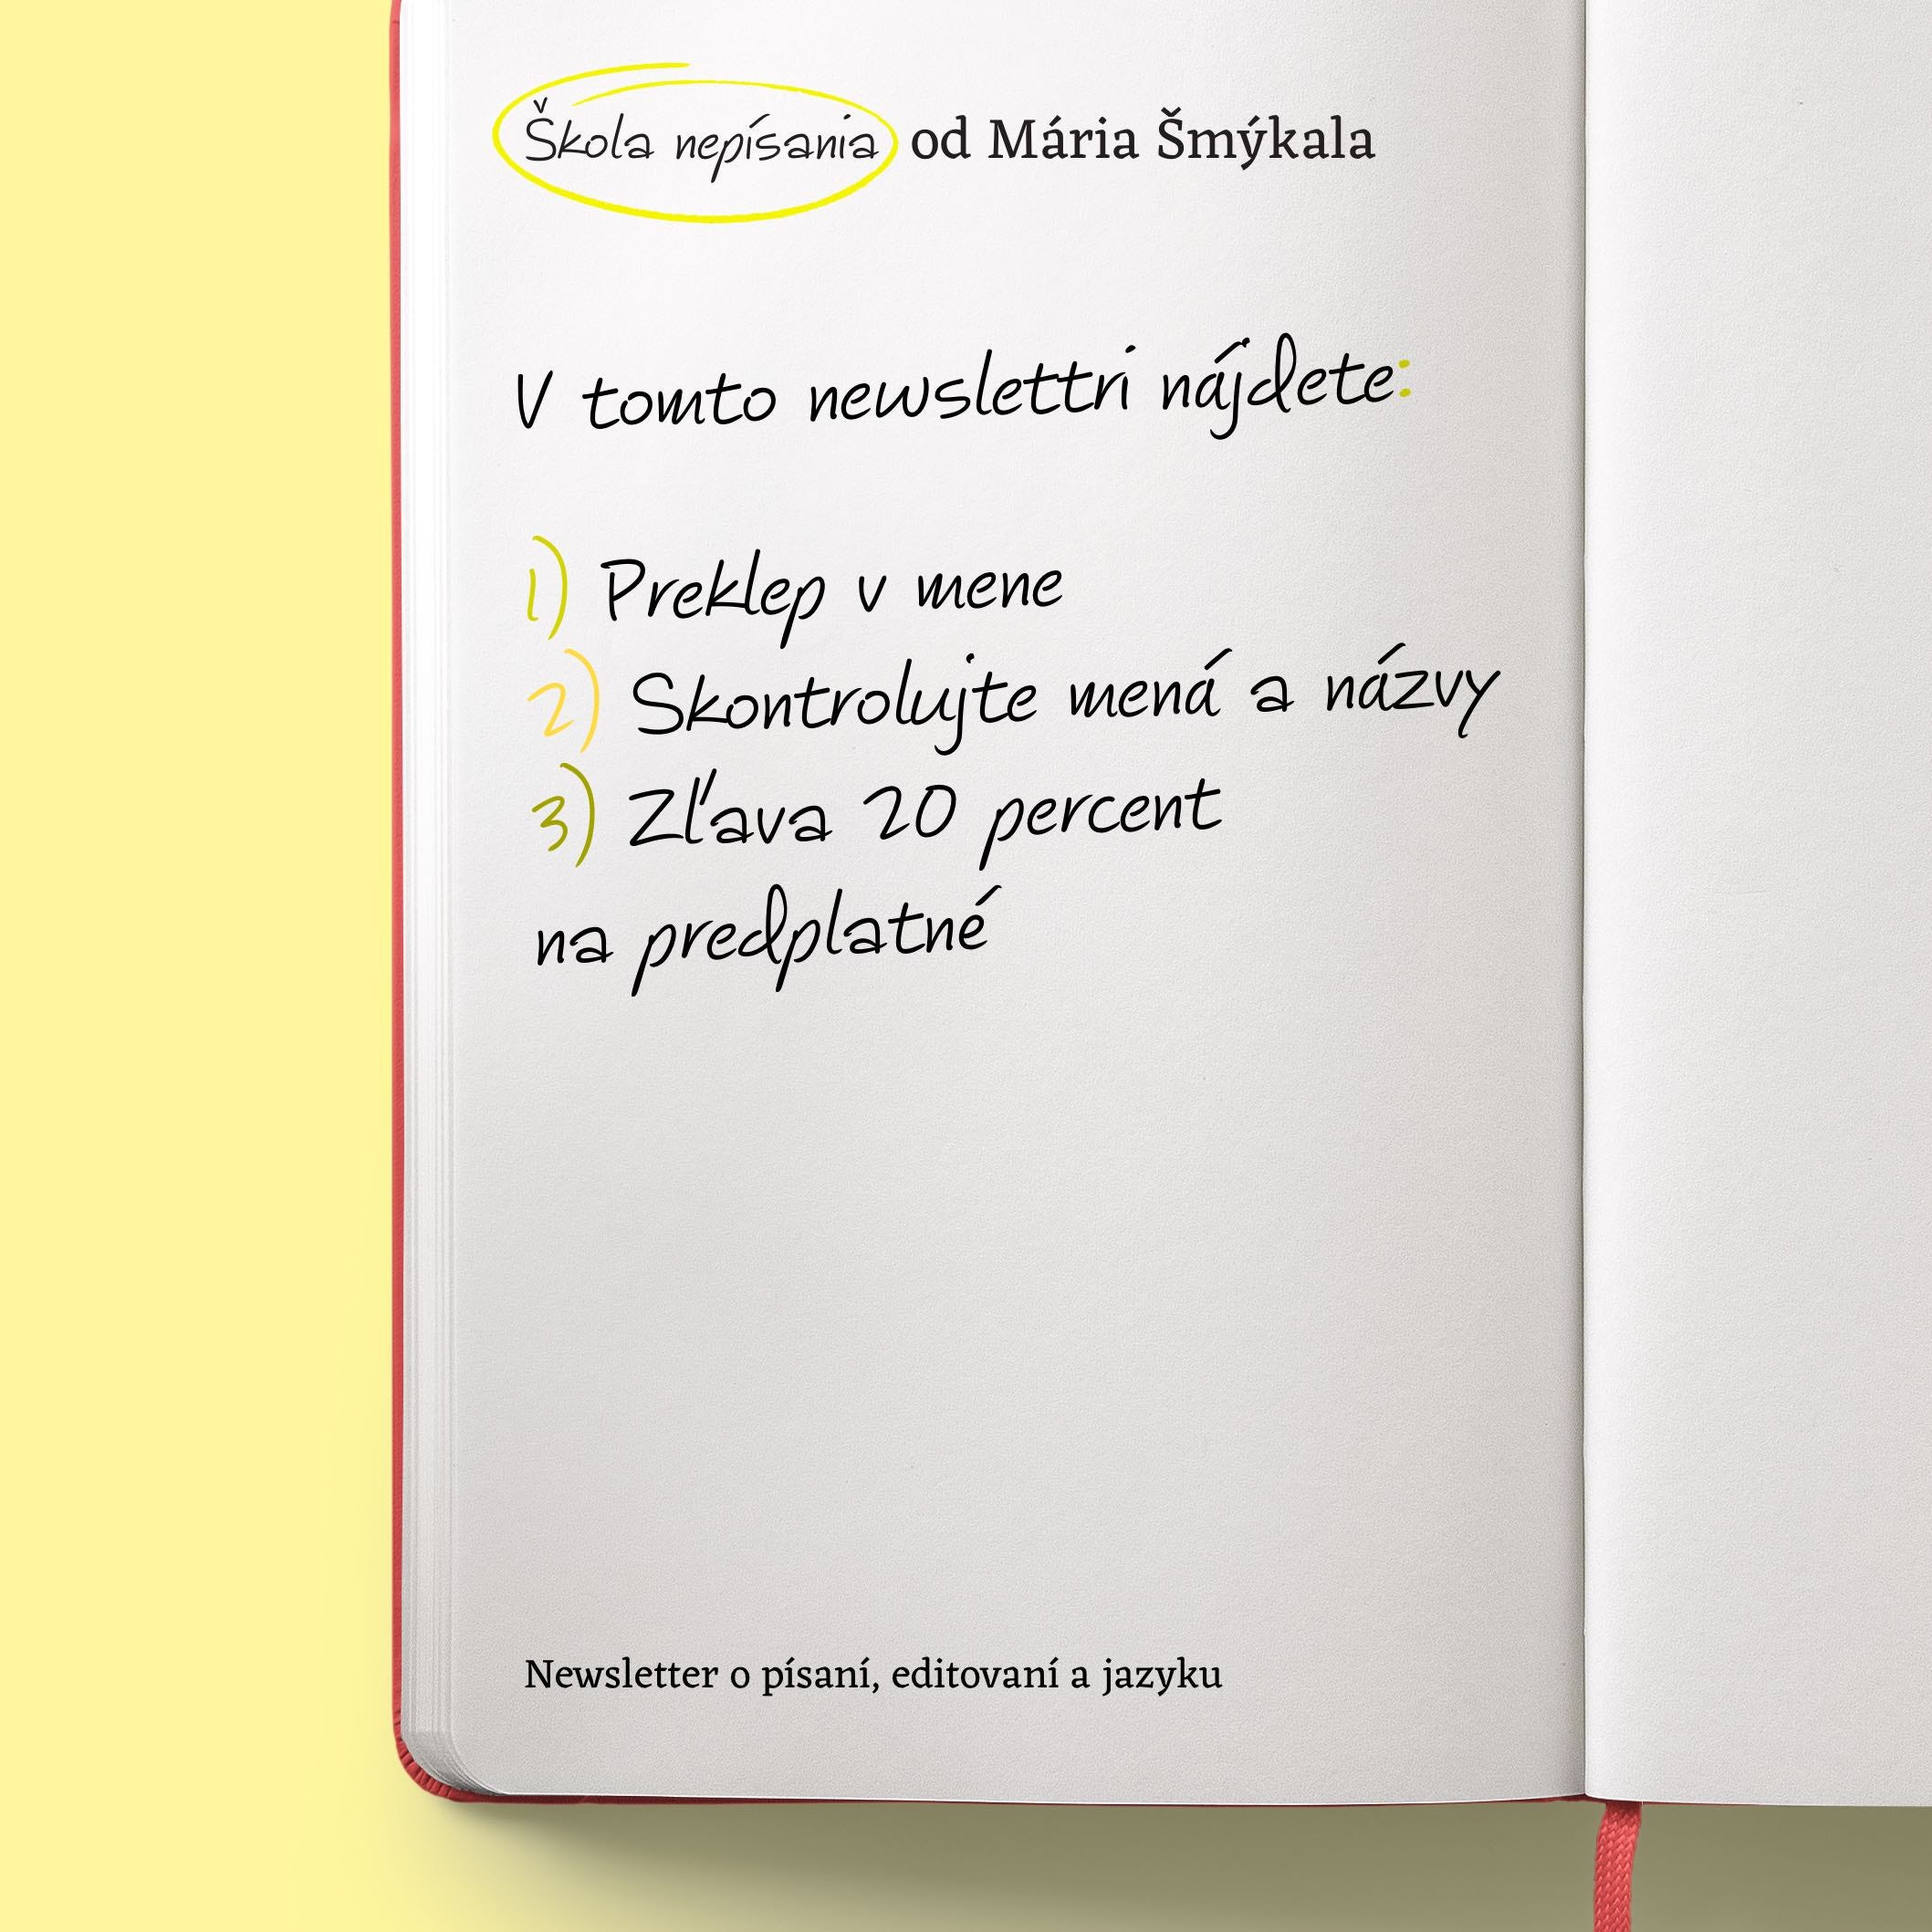 Škola nepísania od Mária Šmýkala
V tomto newslettri nájdete:
1) Preklep v mene
2) Skontrolujte mená a názvy
3) Zľava 20 percent
na predplatné
Newsletter o písaní, editovaní a jazyku